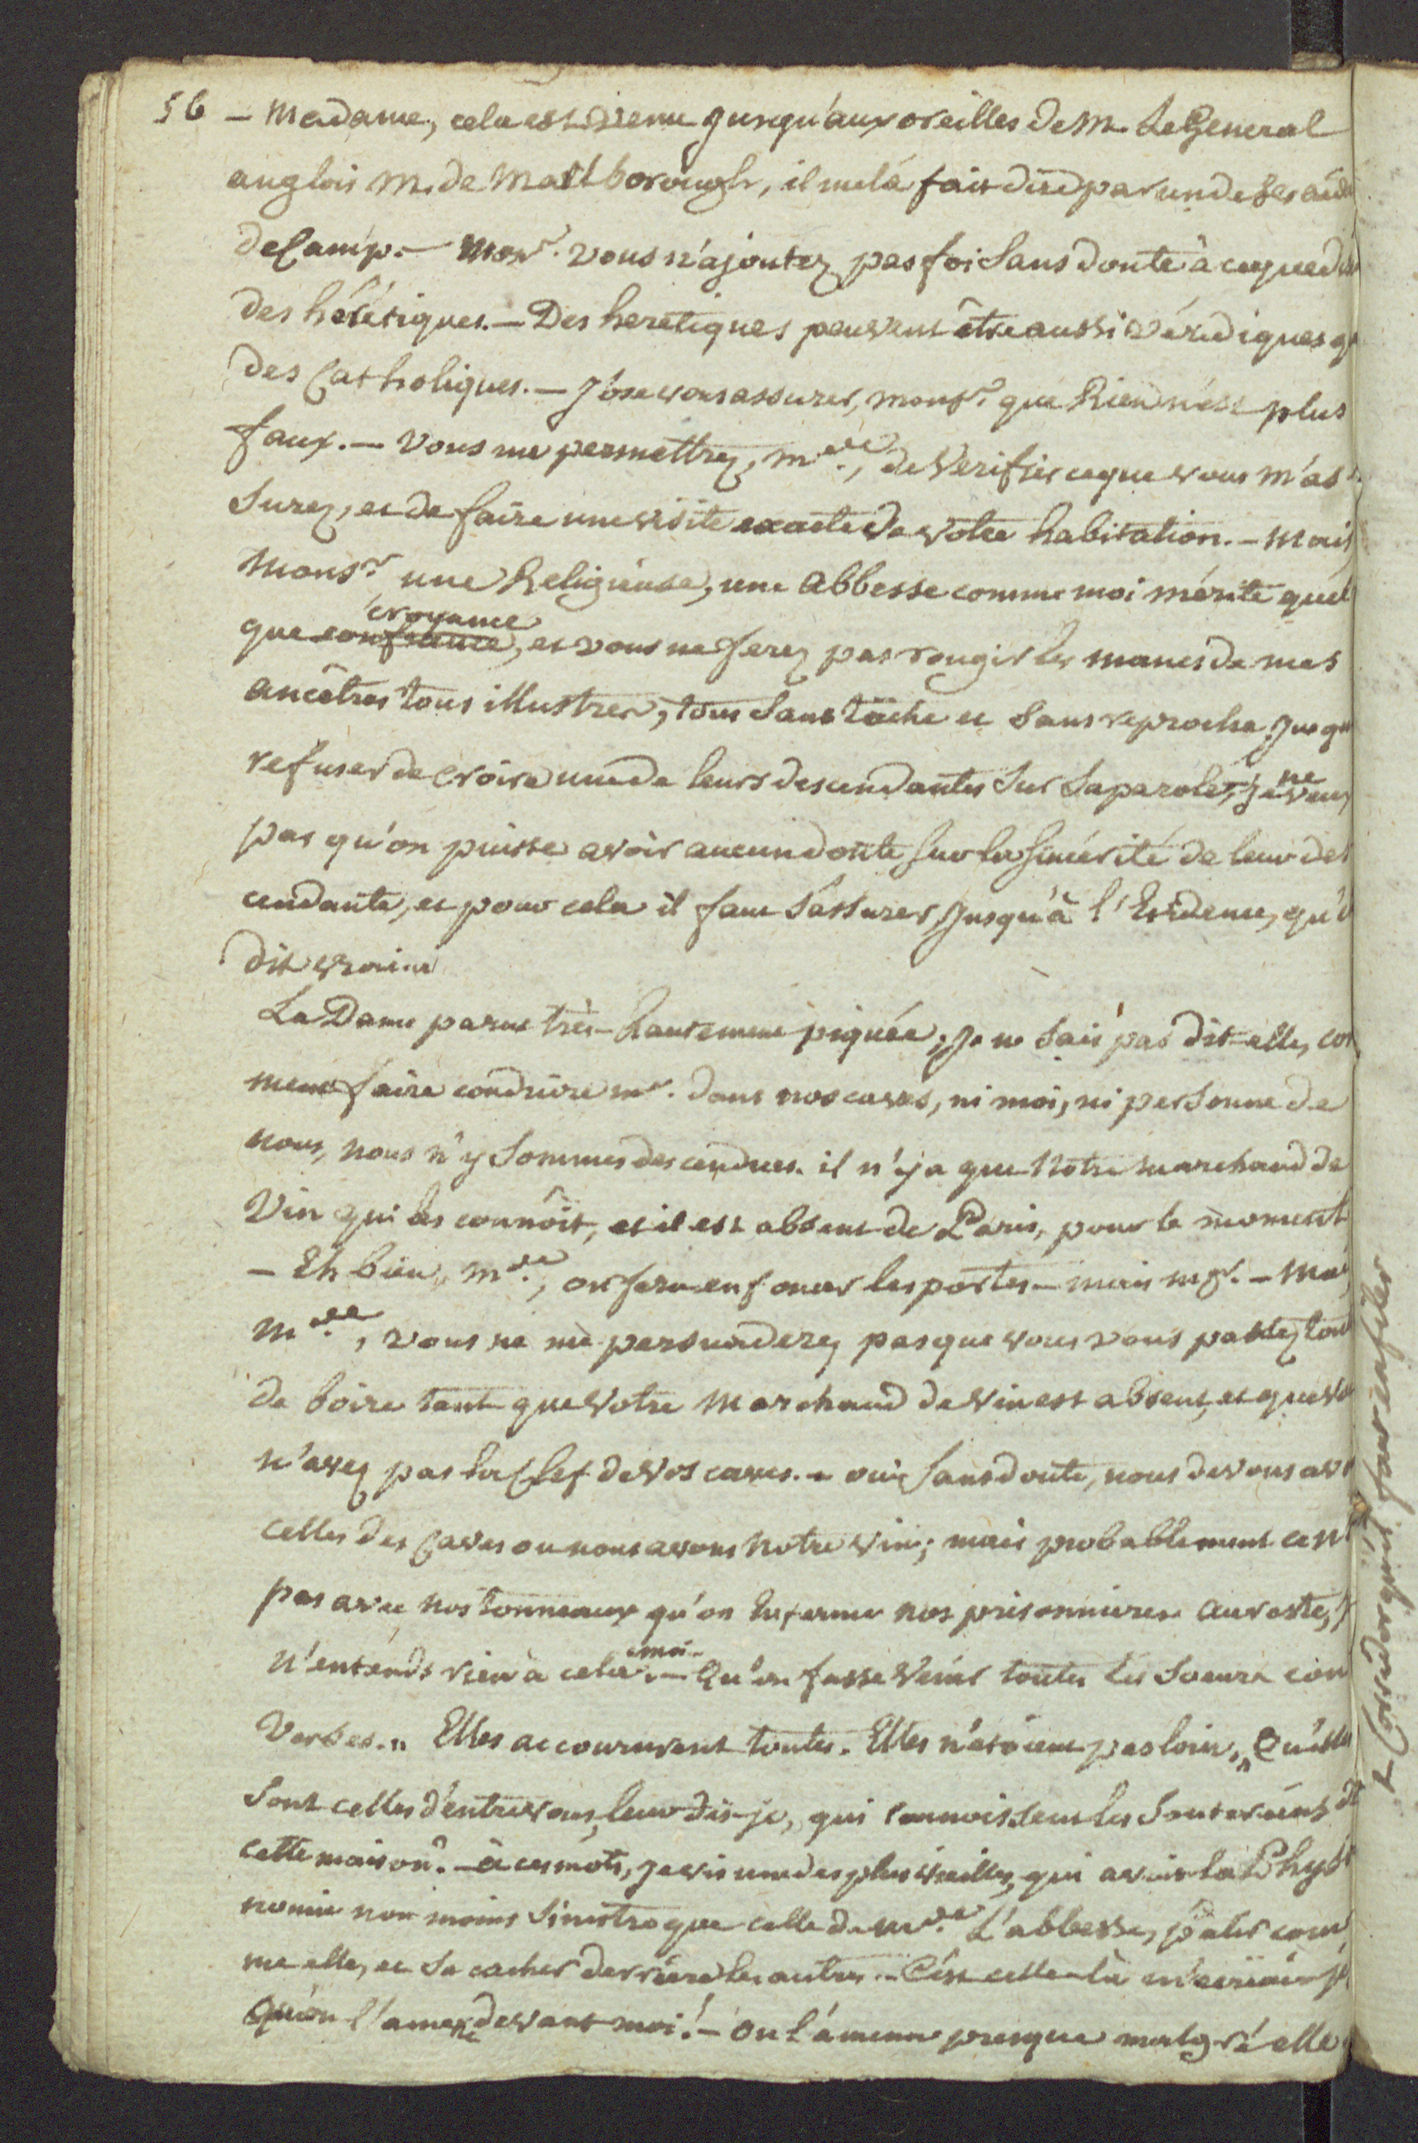 56 – Madame, cela est venu jusqu'aux oreilles de M. Le General
anglois M. de Mallborough, il me l'a fait dire par un de ses aid
de Camp. – Monsr. vous n'ajoutez pas foi sans doute à ce que d
des hérétiques. – Des heretiques peuvent être aussi véridiques q
des Catholiques. – J'ose vous assurer, monsr. que Rien n'est plus
faux. – Vous me permettrez, mde., de Verifier ce que vous m'as
surez, et de faire une visite exacte de votre habitation. – Mais
Monsr. une Religieuse, une Abbesse comme moi mérite quel
croyance
que confiance, et vous ne ferez pas rougir les manes de mes
ancêtres tous illustres, tous sans tâche et sans reproche jusqu
refuser de croire une de leurs descendantes sur sa parole, je ne veux
pas qu'on puisse avoir aucun doute sur la sincérité de leur des
cendante, et pour cela il faut s'assurer, jusqu'à l'Evidence, qu'e
dit vrai.
La Dame parut très-hautement piquée; Je ne sais pas dit-elle, com
ment faire conduire mr. dans nos caves, ni moi, ni personne de
nous, nous n'y sommes descendues. il n'y a que Notre marchand de
Vin qui les connoît, et il est absent de Paris, pour le moment
– Eh bien, mde., on fera enfoncer les portes – mais mgr. – Mai
Mde., vous ne me persuaderez pas que vous vous passez tou
de boire tant que votre Marchand de vin est absent, et que vo
n'avez pas la Clef de vos caves. – oui sans doute, nous devons avo
celles des Caves ou nous avons Notre vin; mais probablement ce n'
pas avec nos tonneaux qu'on Enferme nos prisonnieres. au reste, j
n'entends rien à cela moi. – Qu'on fasse venir toutes les Soeurs con
Verses.„ Elles accoururent toutes. Elles n'étoient pas loin, „ Qu'elles
sont celles d'entre vous, leur dis-je, qui connoissent les Souterains de
cette maison? – à ces mots, je vis une des plus vieilles, qui avoit la Physi
nomie non moins sinistre que celle de mde. L'abbesse, palir com
me elle, et se cacher derrière les autres. – C'est celle-là m'ecriai-je
Qu'on l'amene devant moi! – on l'amena presque malgré elle